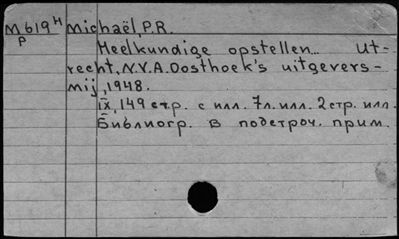 М619н Michaël, P.R.
р
Heelkundige opstellen... Ut-
recht, N.V.A. Oosthoek's uitgevers-
mij, 1948.
IX, 149 стр. с илл. 7л. илл. 2 стр. илл.
Библиогр. в подстроч. прим.